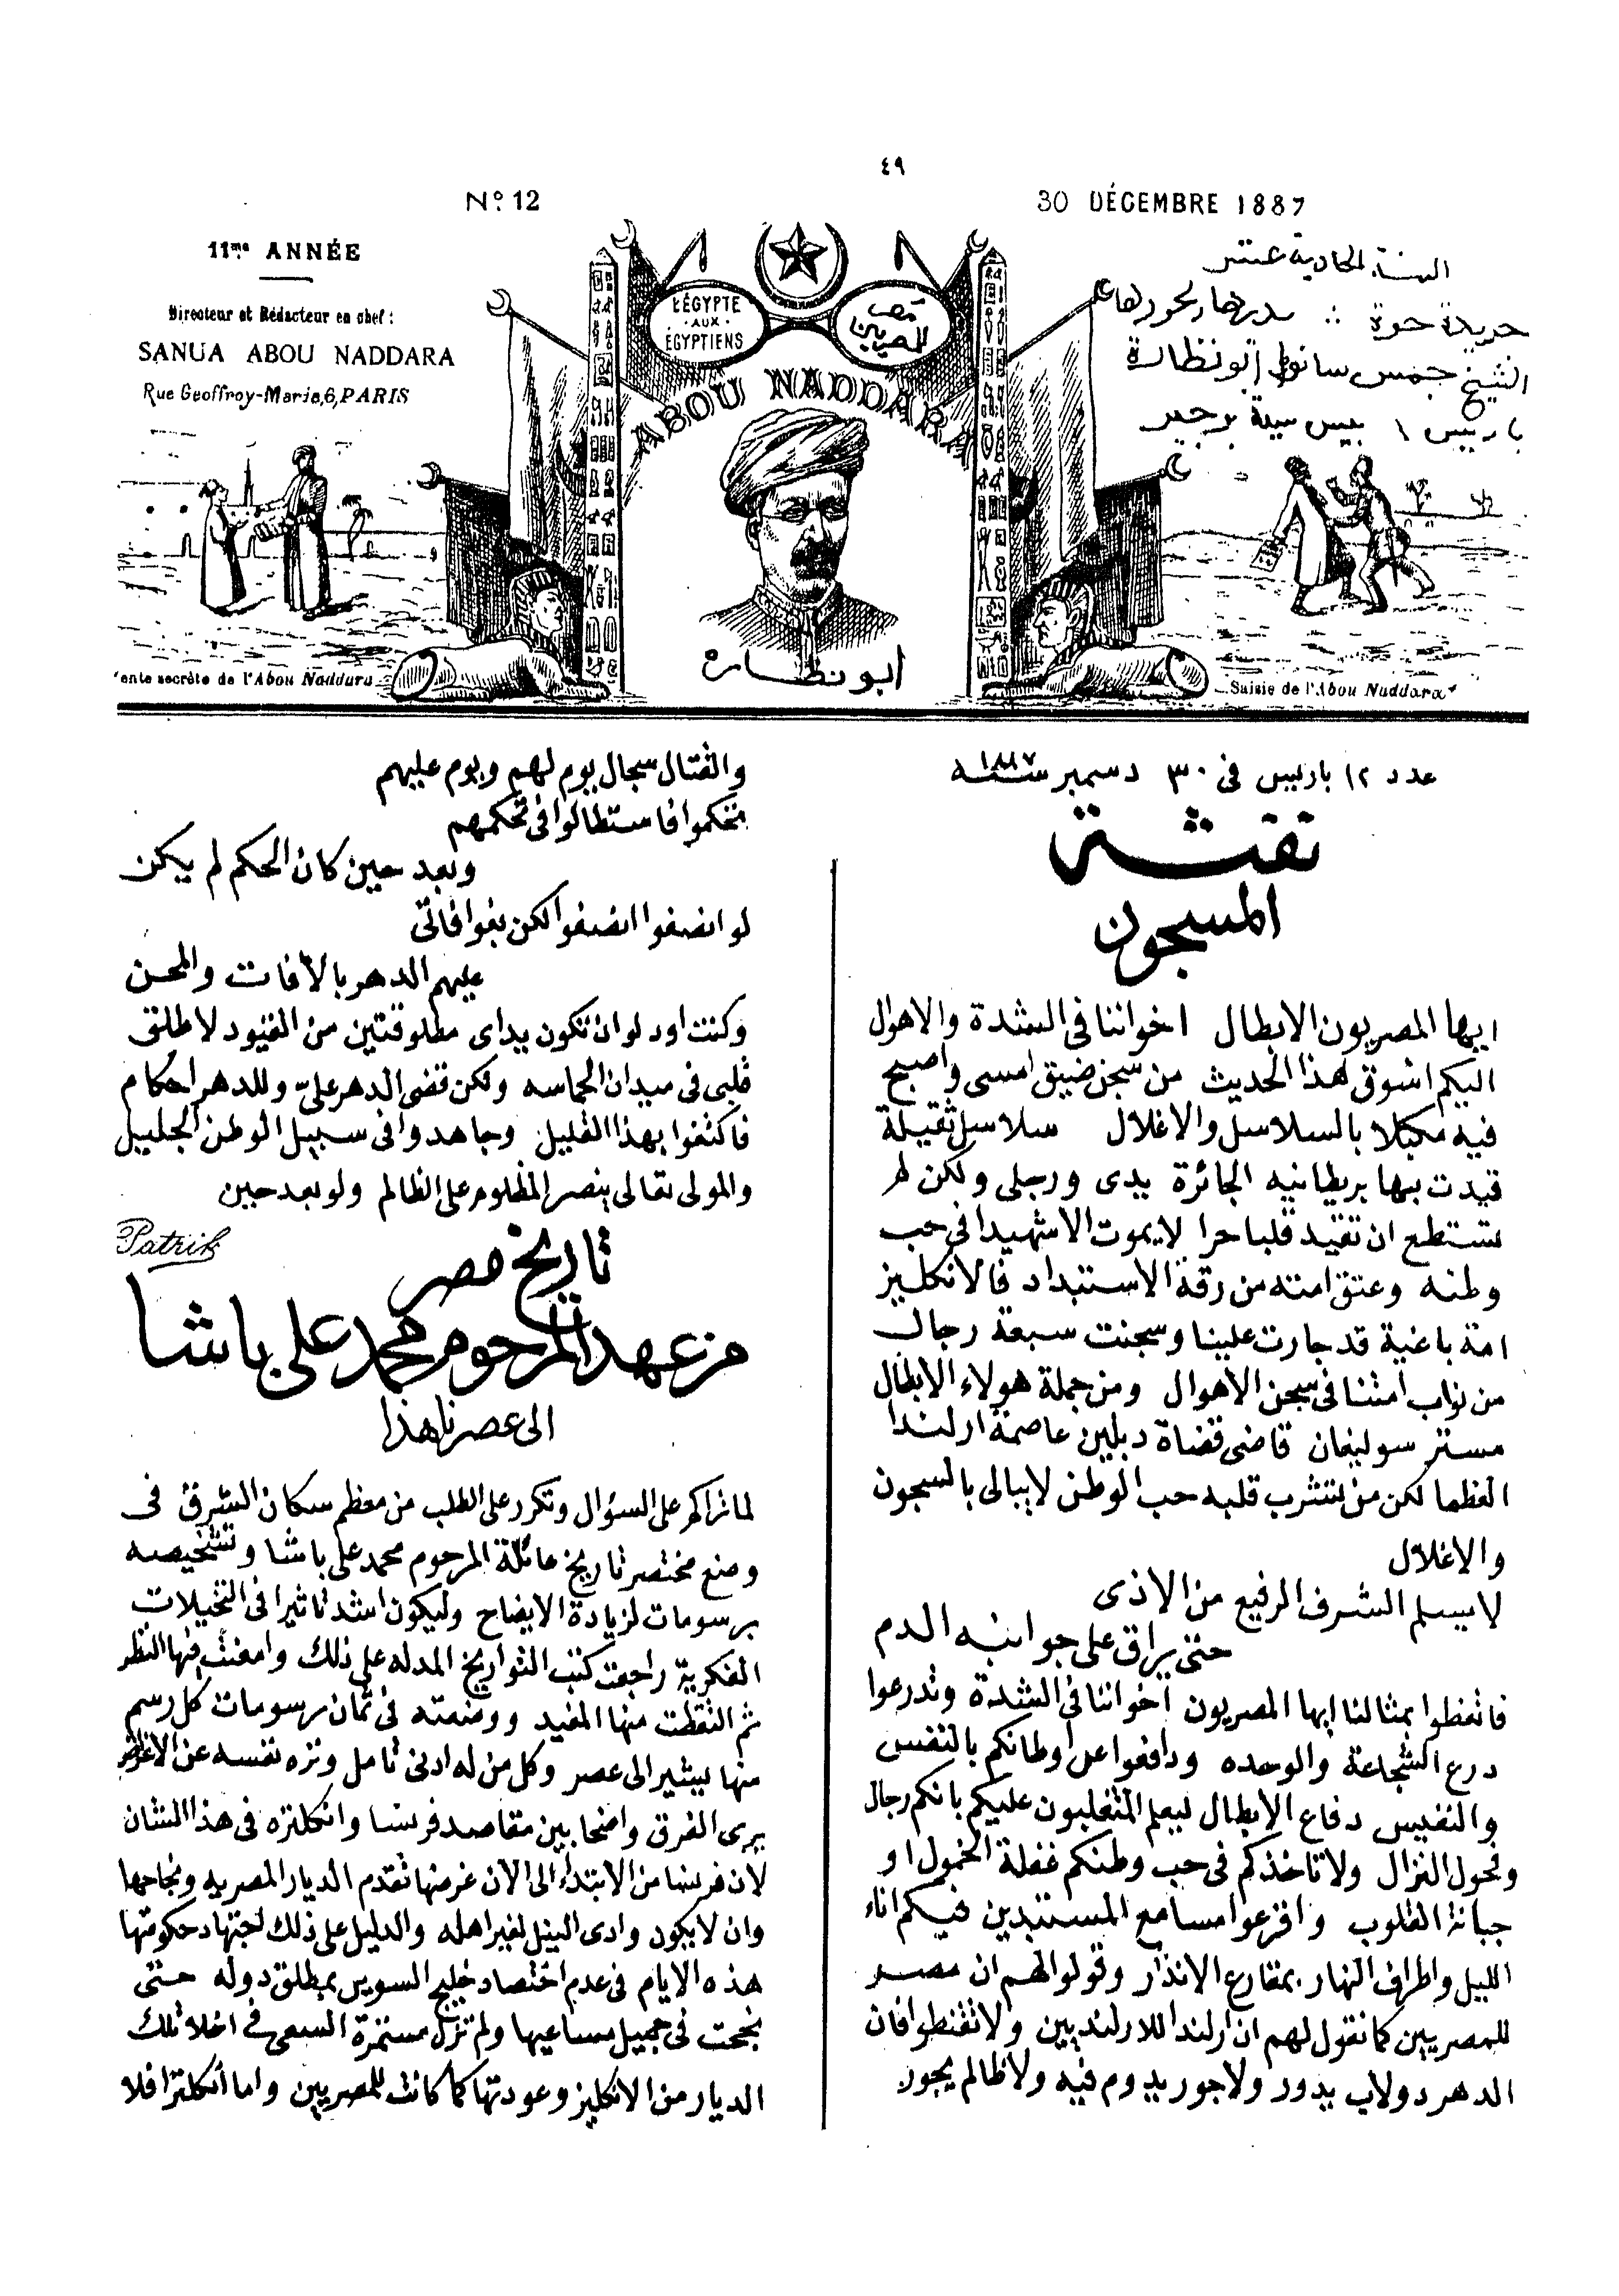 ٤٩
Nº 12
30 DÉCEMBRE 1887
11me ANNÉE
Directeur et Rédacteur en chef:
SANUA ABOU NADDARA
Rue Geoffroy-Marie, 6, PARIS
L'ÉGYPTE
AUX
ÉGYPTIENS
مصر
للمصريين
ABOU NADDARA
السنة الحادية عشر
جريدة حرة مديرها ومحررها
الشيخ جمس سانوا ابو نظارة
باريس
ابو نظاره
Vente secrète de l'Abou Naddara
Saisie de l'Abou Naddara
عدد ١٢ باريس فى ٣٠ دسمبر سنة ١٨٨٧
نفثة
المسجون
ايها المصريون الابطال اخواننا فى الشدة والاهوال
اليكم اشوق هذا الحديث من سجن ضيق امسى واصبح
فيه مكبلا بالسلاسل والاغلال سلاسل ثقيلة
قيدت بها بريطانيه الجائرة يدى ورجلى ولكن لم
تستطع ان تقيد قلبا حرا لا يموت الا شهيدا فى حب
وطنه وعتق امته من رقة الاستبداد فالانكليز
امة باغية قد جارت علينا وسجنت سبعة رجال
من نواب امتنا فى سجن الاهوال ومن جملة هولاء الابطال
مستر سوليفان قاضى قضاة دبلين عاصمة ارلندا
العظما لكن من تشرب قلبه حب الوطن لا يبالى بالسجون
والاغلال
لا يسلم الشرف الرفيع من الاذى
حتى يراق على جوانبه الدم
فاتعظوا بمثالنا ايها المصريون اخواننا فى الشدة وتدرعوا
درع الشجاعة والوحده ودافعوا عن اوطانكم بالنفس
والنفيس دفاع الابطال ليعلم المتغلبون عليكم بانكم رجال
وفحول النزال ولا تاخذكم فى حب وطنكم غفلة الخمول او
جبانة القلوب واقرعوا مسامع المستبدين فيكم اناء
الليل واطراف النهار بمقارع الانذار وقولوا لهم ان مصر
للمصريين كما نقول لهم ان ارلندا للارلنديين ولا تقنطوا فان
الدهر دولاب يدور ولا جور يدوم فيه ولا ظالم يجور
والقتال سجال يوم لهم ويوم عليهم
تحكموا فاستطالوا فى تحكمهم
وبعد حين كان الحكم لم يكن
لو انصفوا انصفوا لكن بغوا فاتى
عليهم الدهر بالافات والمحن
وكنت اود لو ان تكون يداى مطلوقتين من القيود لاطلق
قلبى فى ميدان الحماسه ولكن قضى الدهر علىّ وللدهر احكام
فاكتفوا بهذا القليل وجاهدوا فى سبيل الوطن الجليل
والمولى تعالى ينصر المظلوم على الظالم ولو بعد حين
Patrik
تاريخ مصر
من عهد المرحوم محمد على باشا
الى عصرنا هذا
لما تراكم على السؤال وتكرر على الطلب من معظم سكان الشرق فى
وضع مختصر تاريخ عائلة المرحوم محمد على باشا وتشخيصه
برسومات لزيادة الايضاح وليكون اشد تاثيرا فى التخيلات
الفكرية راجعت كتب التواريخ المدله على ذلك وامعنت فيها النظر
ثم التقطت منها المفيد ووضعته فى ثمان رسومات كل رسم
منها يشير الى عصر وكل من له ادنى تامل ونزه نفسه عن الاغراض
يرى الفرق واضحا بين مقاصد فرنسا وانكلتره فى هذا الشان
لان فرنسا من الابتداء الى الان غرضها تقدم الديار المصريه ونجاحها
وان لا يكون وادى النيل لغير اهله والدليل على ذلك اجتهاد حكومتها
هذه الايام فى عدم اختصاد خليج السويس بمطلق دوله حتى
نجحت فى جميل مساعيها ولم تزل مستمرة السعى فى اخلا تلك
الديار من الانكليز وعودتها كما كانت للمصريين واما انكلترا فلا